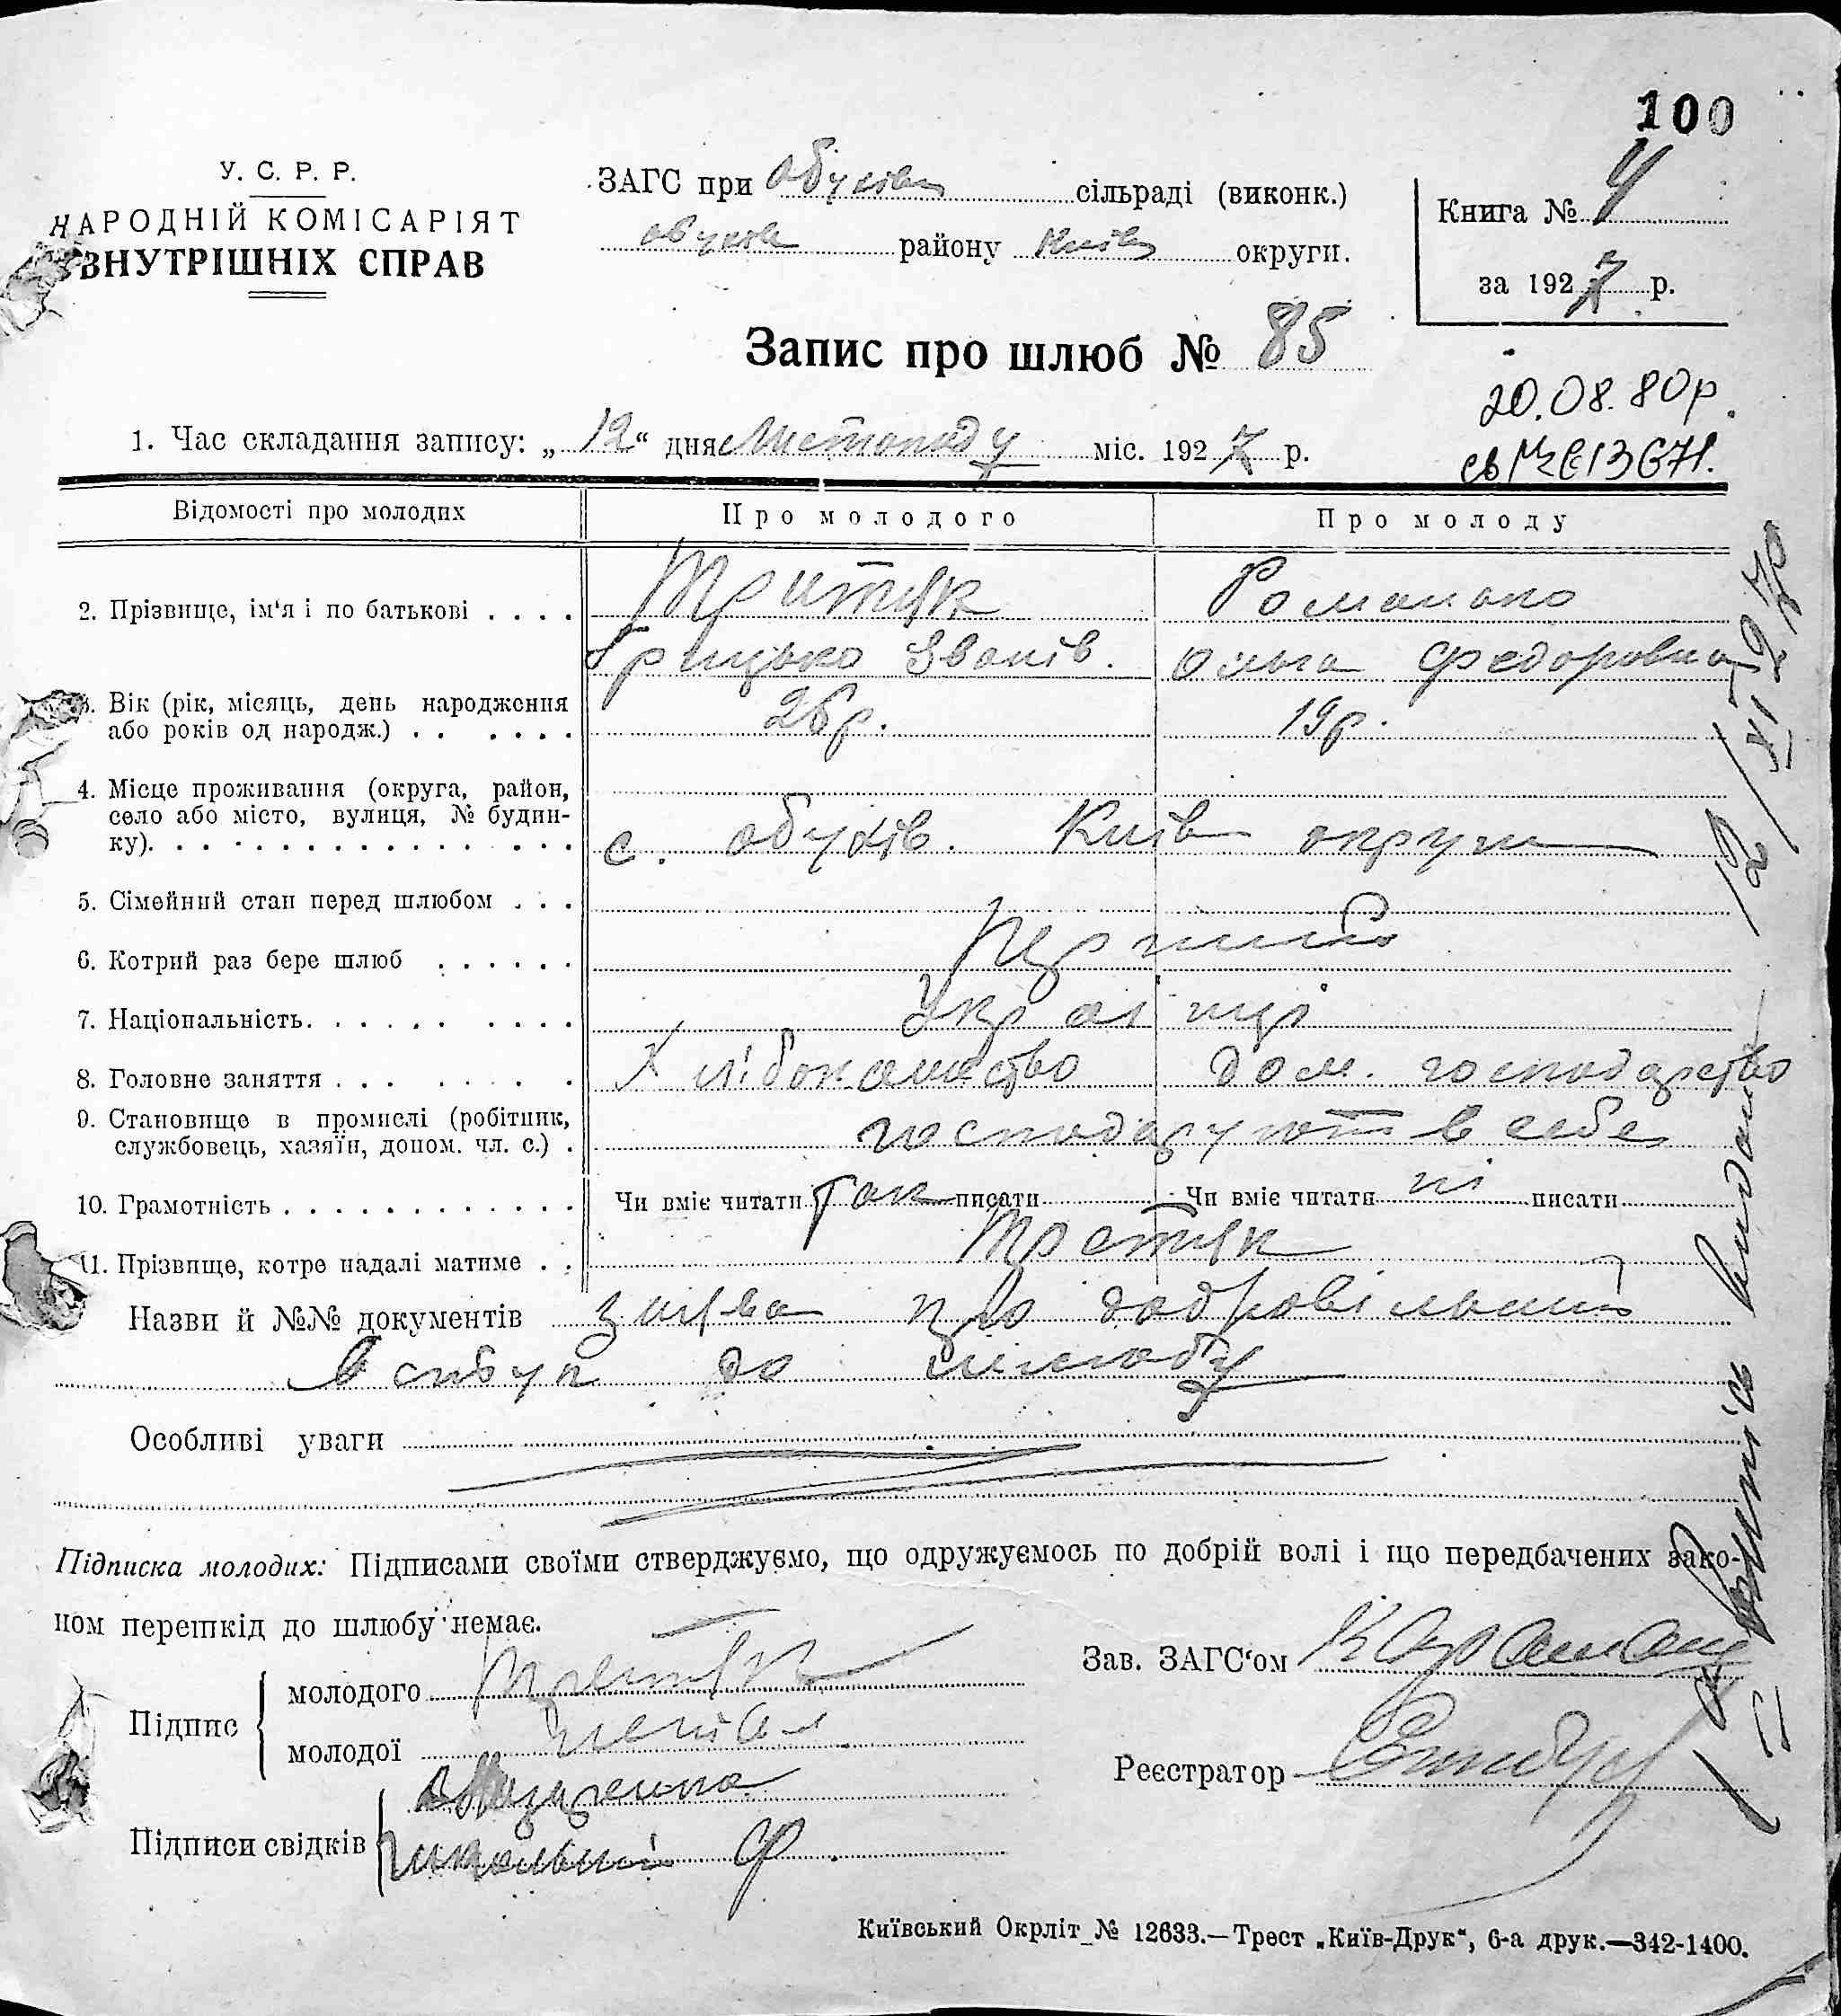 100
У. С. Р. Р.
НАРОДНІЙ КОМІСАРІЯТ
ВНУТРІШНІХ СПРАВ
ЗАГС при Обухівс сільраді (виконк.)
Обухів району Київ округи.
Книга № 4
за 1927 р.
Запис про шлюб № 85
20.08.80р.
1. Час складання запису: „12“ дня Листопаду міс. 1927 р.
Відомості про молодих
Про молодого
Про молоду
2. Прізвище, ім‘я і по батькові . . . .
Романько
Грицько Іванів.
Ольга Федоровна
3. Вік (рік, місяць, день народження
або років од народж.) . . . . . .
26р.
19р.
4. Місце проживання (округа, район,
село або місто, вулиця, № будин-
ку). . . . . . . . . . . . . . . .
с. Обухів. Київ округи
5. Сімейний стан перед шлюбом . . .
6. Котрий раз бере шлюб . . . . . .
Перший
7. Національність. . . . . . . . . .
Українці
8. Головне заняття . . . . . . . .
Хлібопашество
Дом. господарство
9. Становище в промислі (робітник,
службовець, хазяїн, допом. чл. с.) .
господарують в себе
10. Грамотність . . . . . . . . . . . .
Чи вміє читати так писати
Чи вміє читати ні писати
11. Прізвище, котре надалі матиме . .
Назви й №№ документів заява про добровільний
вступ до шлюбу
Особливі уваги
Підписка молодих: Підписами своїми стверджуємо, що одружуємось по добрій волі і що передбачених зако-
ном перешкід до шлюбу немає.
Зав. ЗАГС‘ом
Підпис
молодого
молодої
Реєстратор
Підписи свідків
Випись видано
12/XI 27р
Київський Окрліт № 12633.—Трест „Київ-Друк“, 6-а друк.—342-1400.